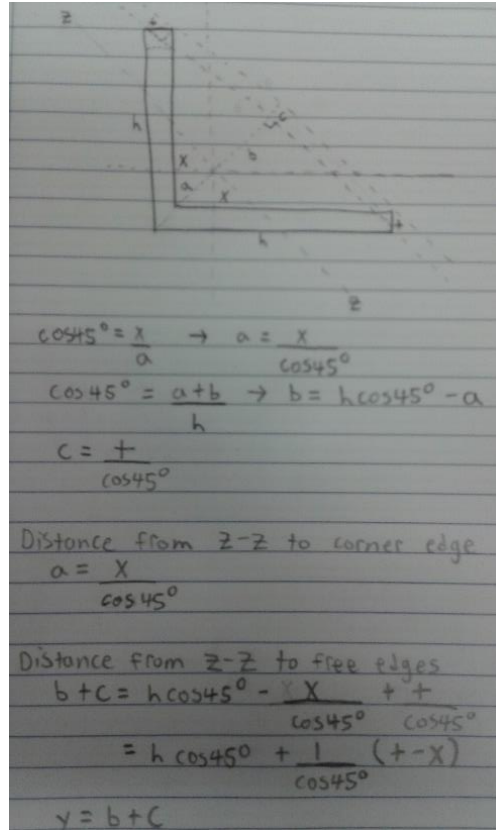 z
t
h
c
b
x
a
x
t
h
z
cos45° = x/a → a = x/cos45°
cos45° = a+b/h → b = hcos45° - a
c = t/cos45°
Distance from z-z to corner edge
a = x/cos45°
Distance from z-z to free edges
b + c = hcos45° - x/cos45° + t/cos45°
= h cos45° + 1/cos45° (t - x)
y = b + c